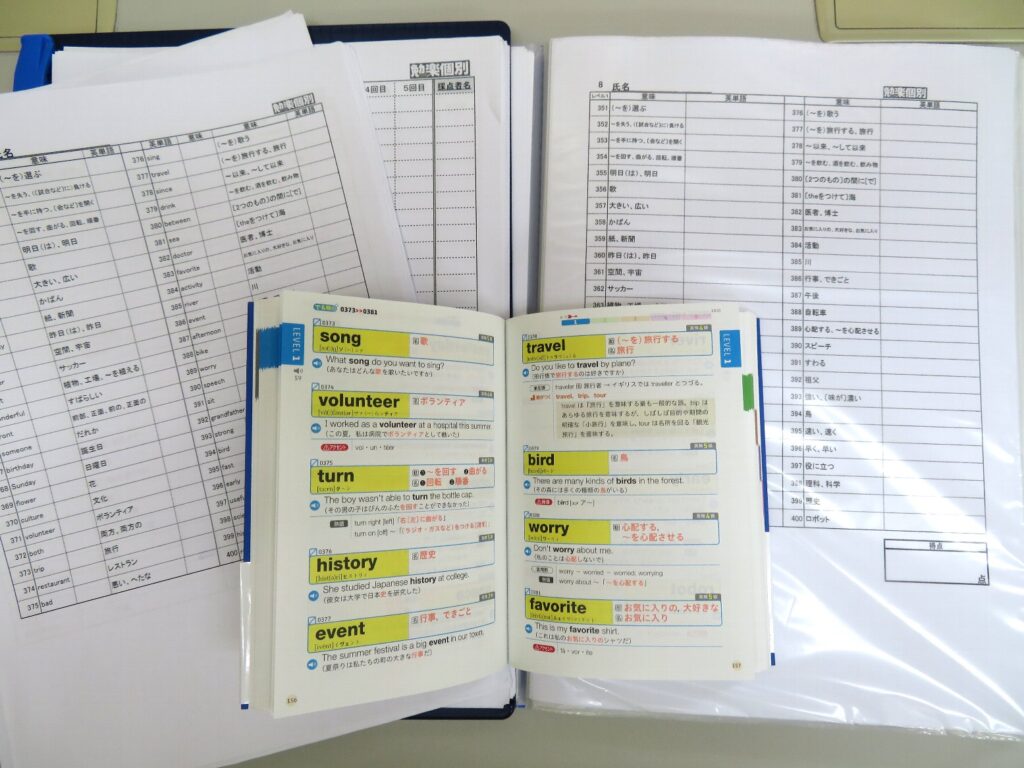 勉楽個別
4回目 5回目 採点者名
勉楽個別
意味 英単語 意味 英単語
(〜を)選ぶ 376 sing (〜を)歌う
〜を失う、(〔試合など〕に)負ける 377 travel (〜を)旅行する、旅行
〜を手に持つ、(会など)を開く 378 since 〜以来、〜して以来
〜を回す、曲がる、回転、順番 379 drink 〜を飲む、酒を飲む、飲み物
明日(は)、明日 380 between 〔2つのもの〕の間に[で]
歌 381 sea 〔theをつけて〕海
大きい、広い 382 doctor 医者、博士
かばん 383 favorite お気に入りの、大好きな、お気に入り
紙、新聞 384 activity 活動
昨日(は)、昨日 385 river 川
空間、宇宙 386 event
サッカー 387 afternoon
植物、工場、〜を植える 388 bike
すばらしい 389 worry
前部、正面、前の、正面の 390 speech
someone だれか 391 sit
birthday 誕生日 392 grandfather
368 Sunday 日曜日 393 strong
369 flower 花 394 bird
370 culture 文化 395 fast
371 volunteer ボランティア 396 early
372 both 両方、両方の 397 useful
373 trip 旅行
374 restaurant レストラン 399
375 bad 悪い、へたな 400
8 氏名 勉楽個別
レベル1 意味 英単語 意味 英単語
351 (〜を)選ぶ 376 (〜を)歌う
352 〜を失う、(〔試合など〕に)負ける 377 (〜を)旅行する、旅行
353 〜を手に持つ、(会など)を開く 378 〜以来、〜して以来
354 〜を回す、曲がる、回転、順番 379 〜を飲む、酒を飲む、飲み物
355 明日(は)、明日 380 〔2つのもの〕の間に[で]
356 歌 381 〔theをつけて〕海
357 大きい、広い 382 医者、博士
358 かばん 383 お気に入りの、大好きな、お気に入り
359 紙、新聞 384 活動
360 昨日(は)、昨日 385 川
361 空間、宇宙 386 行事、できごと
362 サッカー 387 午後
363 388 自転車
389 心配する、〜を心配させる
390 スピーチ
391 すわる
392 祖父
393 強い、〔味が〕濃い
394 鳥
395 速い、速く
396 早く、早い
397 役に立つ
398 理科、科学
399 歴史
400 ロボット
得点
点
でる順 0373>>0381
LEVEL 1
0373
song 名 歌
What song do you want to sing?
(あなたはどんな歌を歌いたいですか)
0374
volunteer 名 ボランティア
I worked as a volunteer at a hospital this summer.
(この夏、私は病院でボランティアとして働いた)
アクセント vol・un・teer
0375
turn 動 ❶〜を回す ❷曲がる
名 ❶回転 ❷順番
The boy wasn't able to turn the bottle cap.
(その男の子はびんのふたを回すことができなかった)
熟語 turn right [left]「右[左]に曲がる」
turn on [off] 〜「(ラジオ・ガスなど)をつける[消す]」
0376
history 名 歴史
She studied Japanese history at college.
(彼女は大学で日本史を研究した)
0377
event 名 行事、できごと
The summer festival is a big event in our town.
(夏祭りは私たちの町の大きな行事だ)
156
LEVEL 1
travel 動 (〜を)旅行する
名 旅行
Do you like to travel by plane?
(飛行機で旅行するのは好きですか)
traveler 名 旅行者 → イギリスでは traveller とつづる。
travel, trip, tour
travel は「旅行」を意味する最も一般的な語。trip は
あらゆる旅行を意味するが、しばしば目的や期間の
明確な「小旅行」を意味し、tour は名所を回る「観光
旅行」を意味する。
bird 名 鳥
There are many kinds of birds in the forest.
(その森には多くの種類の鳥がいる)
worry 動 心配する、
〜を心配させる
Don't worry about me.
(私のことは心配しないで)
worry – worried – worried; worrying
熟語 worry about 〜「〜を心配する」
favorite 形 お気に入りの、大好きな
名 お気に入り
This is my favorite shirt.
(これは私のお気に入りのシャツだ)
アクセント fá・vor・ite
157